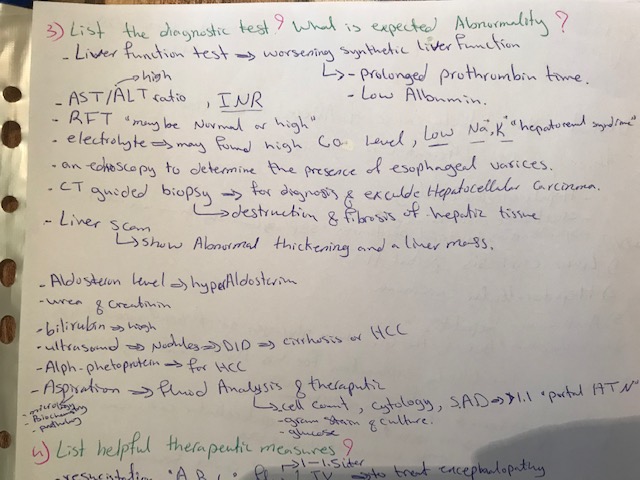 3) List the diagnostic test? What is expected Abnormality?
- Liver function test ⇒ worsening synthetic liver function
↳ - prolonged prothrombin time.
→ high
- Low Albumin.
- AST/ALT ratio , INR
- RFT "maybe Normal or high"
- electrolyte ⇒ may found high Ca level, Low Na⁺, K⁺ "hepatorenal syndrome"
- an echoscopy to determine the presence of esophageal varices.
- CT guided biopsy ⇒ for diagnosis & exculde Hepatocellular Carcinoma.
↳ destruction & fibrosis of hepatic tissue
- Liver scan
↳ show Abnormal thickening and a liver mass.
- Aldosteron level ⇒ hyperAldosterism
- urea & Creatinin
- bilirubin ⇒ high
- ultrasound ⇒ Nodules ⇒ DID ⇒ cirrhosis or HCC
- Alph-phetoprotein ⇒ for HCC
- Aspiration ⇒ fluod Analysis & theraputic
- microbiology
- Biochemistry
- patholog
↳ cell count, cytology, S.A.D ⇒ > 1.1 "portal HTN"
- gram stain & culture.
- glucose
4) List helpful therapeutic measures?
→ 1-1.5 liter
- resuscitation "A.B. IV to treat encephalopathy